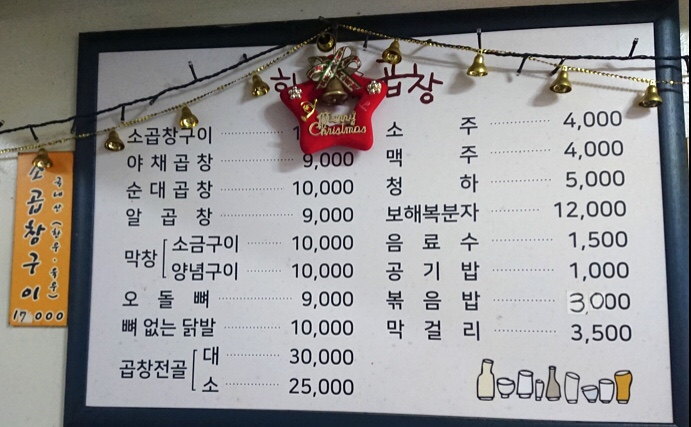 곱창
Merry Christmas
소곱창구이
야채곱창 9,000
순대곱창 10,000
알곱창 9,000
막창 소금구이 10,000
양념구이 10,000
오돌뼈 9,000
뼈 없는 닭발 10,000
곱창전골 대 30,000
소 25,000
소주 4,000
맥주 4,000
청하 5,000
보해복분자 12,000
음료수 1,500
공기밥 1,000
볶음밥 3,000
막걸리 3,500
소곱창구이
17,000